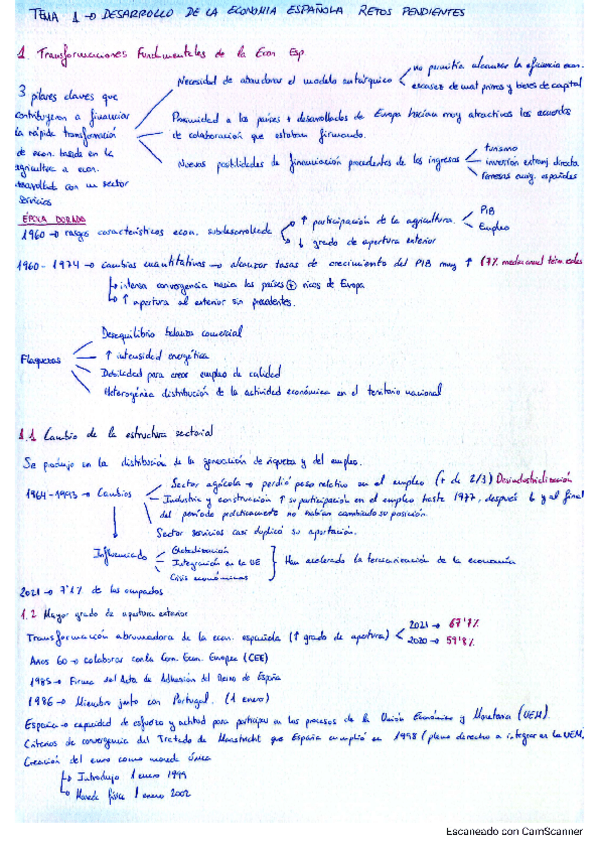 TEMA 1 → DESARROLLO DE LA ECONOMIA ESPAÑOLA RETOS PENDIENTES
1. Transformaciones Fundamentales de la Econ Esp
3 pilares claves que contribuyeron a financiar la rápida transformación de econ. basada en la agricultura a econ. desarrollada con un sector servicios
Necesidad de abandonar el modelo autárquico
no permitía alcanzar la eficiencia econ.
escasez de mat primas y bienes de capital
Proximidad a los países + desarrollados de Europa hacían muy atractivos los acuerdos
de colaboración que estaban firmando.
Nuevas posibilidades de financiación procedentes de los ingresos
turismo
inversión extranj directa
remesas emig. españoles
ÉPOCA DORADA
1960 → rasgos característicos econ. subdesarrollada
↑ participación de la agricultura.
PIB
Empleo
↓ grado de apertura exterior
1960 - 1974 → cambios cuantitativos → alcanzar tasas de crecimiento del PIB muy ↑ (7% media anual térm. reales
↳ intensa convergencia hacia los países + ricos de Europa
↳ ↑ apertura al exterior sin precedentes.
Flaquezas
Desequilibrio balanza comercial
↑ intensidad energética
Debilidad para crear empleo de calidad
Heterogénea distribución de la actividad económica en el territorio nacional
1.1 Cambio de la estructura sectorial
Se produjo en la distribución de la generación de riqueza y del empleo.
1964-1993 → Cambios
Sector agrícola → perdió peso relativo en el empleo (+ de 2/3) Desindustrialización
Industria y construcción ↑ su participación en el empleo hasta 1977, después ↓ y al final
del período prácticamente no habían cambiado su posición.
Sector servicios casi duplicó su aportación.
Influenciado
Globalización
Integración en la UE
Crisis económicas
Han acelerado la terciarización de la economía
2021 → 7'1% de los ocupados
1.2 Mayor grado de apertura exterior
Transformación abrumadora de la econ. española (↑ grado de apertura)
2021 → 67'7%
2020 → 59'8%
Años 60 → colaborar con la Com. Econ. Europea (CEE)
1985 → Firma del Acta de Adhesión del Reino de España
1986 → Miembro junto con Portugal. (1 enero)
España → capacidad de esfuerzo y actitud para participar en los procesos de la Unión Económica y Monetaria (UEM).
Criterios de convergencia del Tratado de Maastricht que España cumplió en 1998 (pleno derecho a integrar en la UEM)
Creación del euro como moneda única
↳ Introdujo 1 enero 1999
↳ Moneda física 1 enero 2002
Escaneado con CamScanner